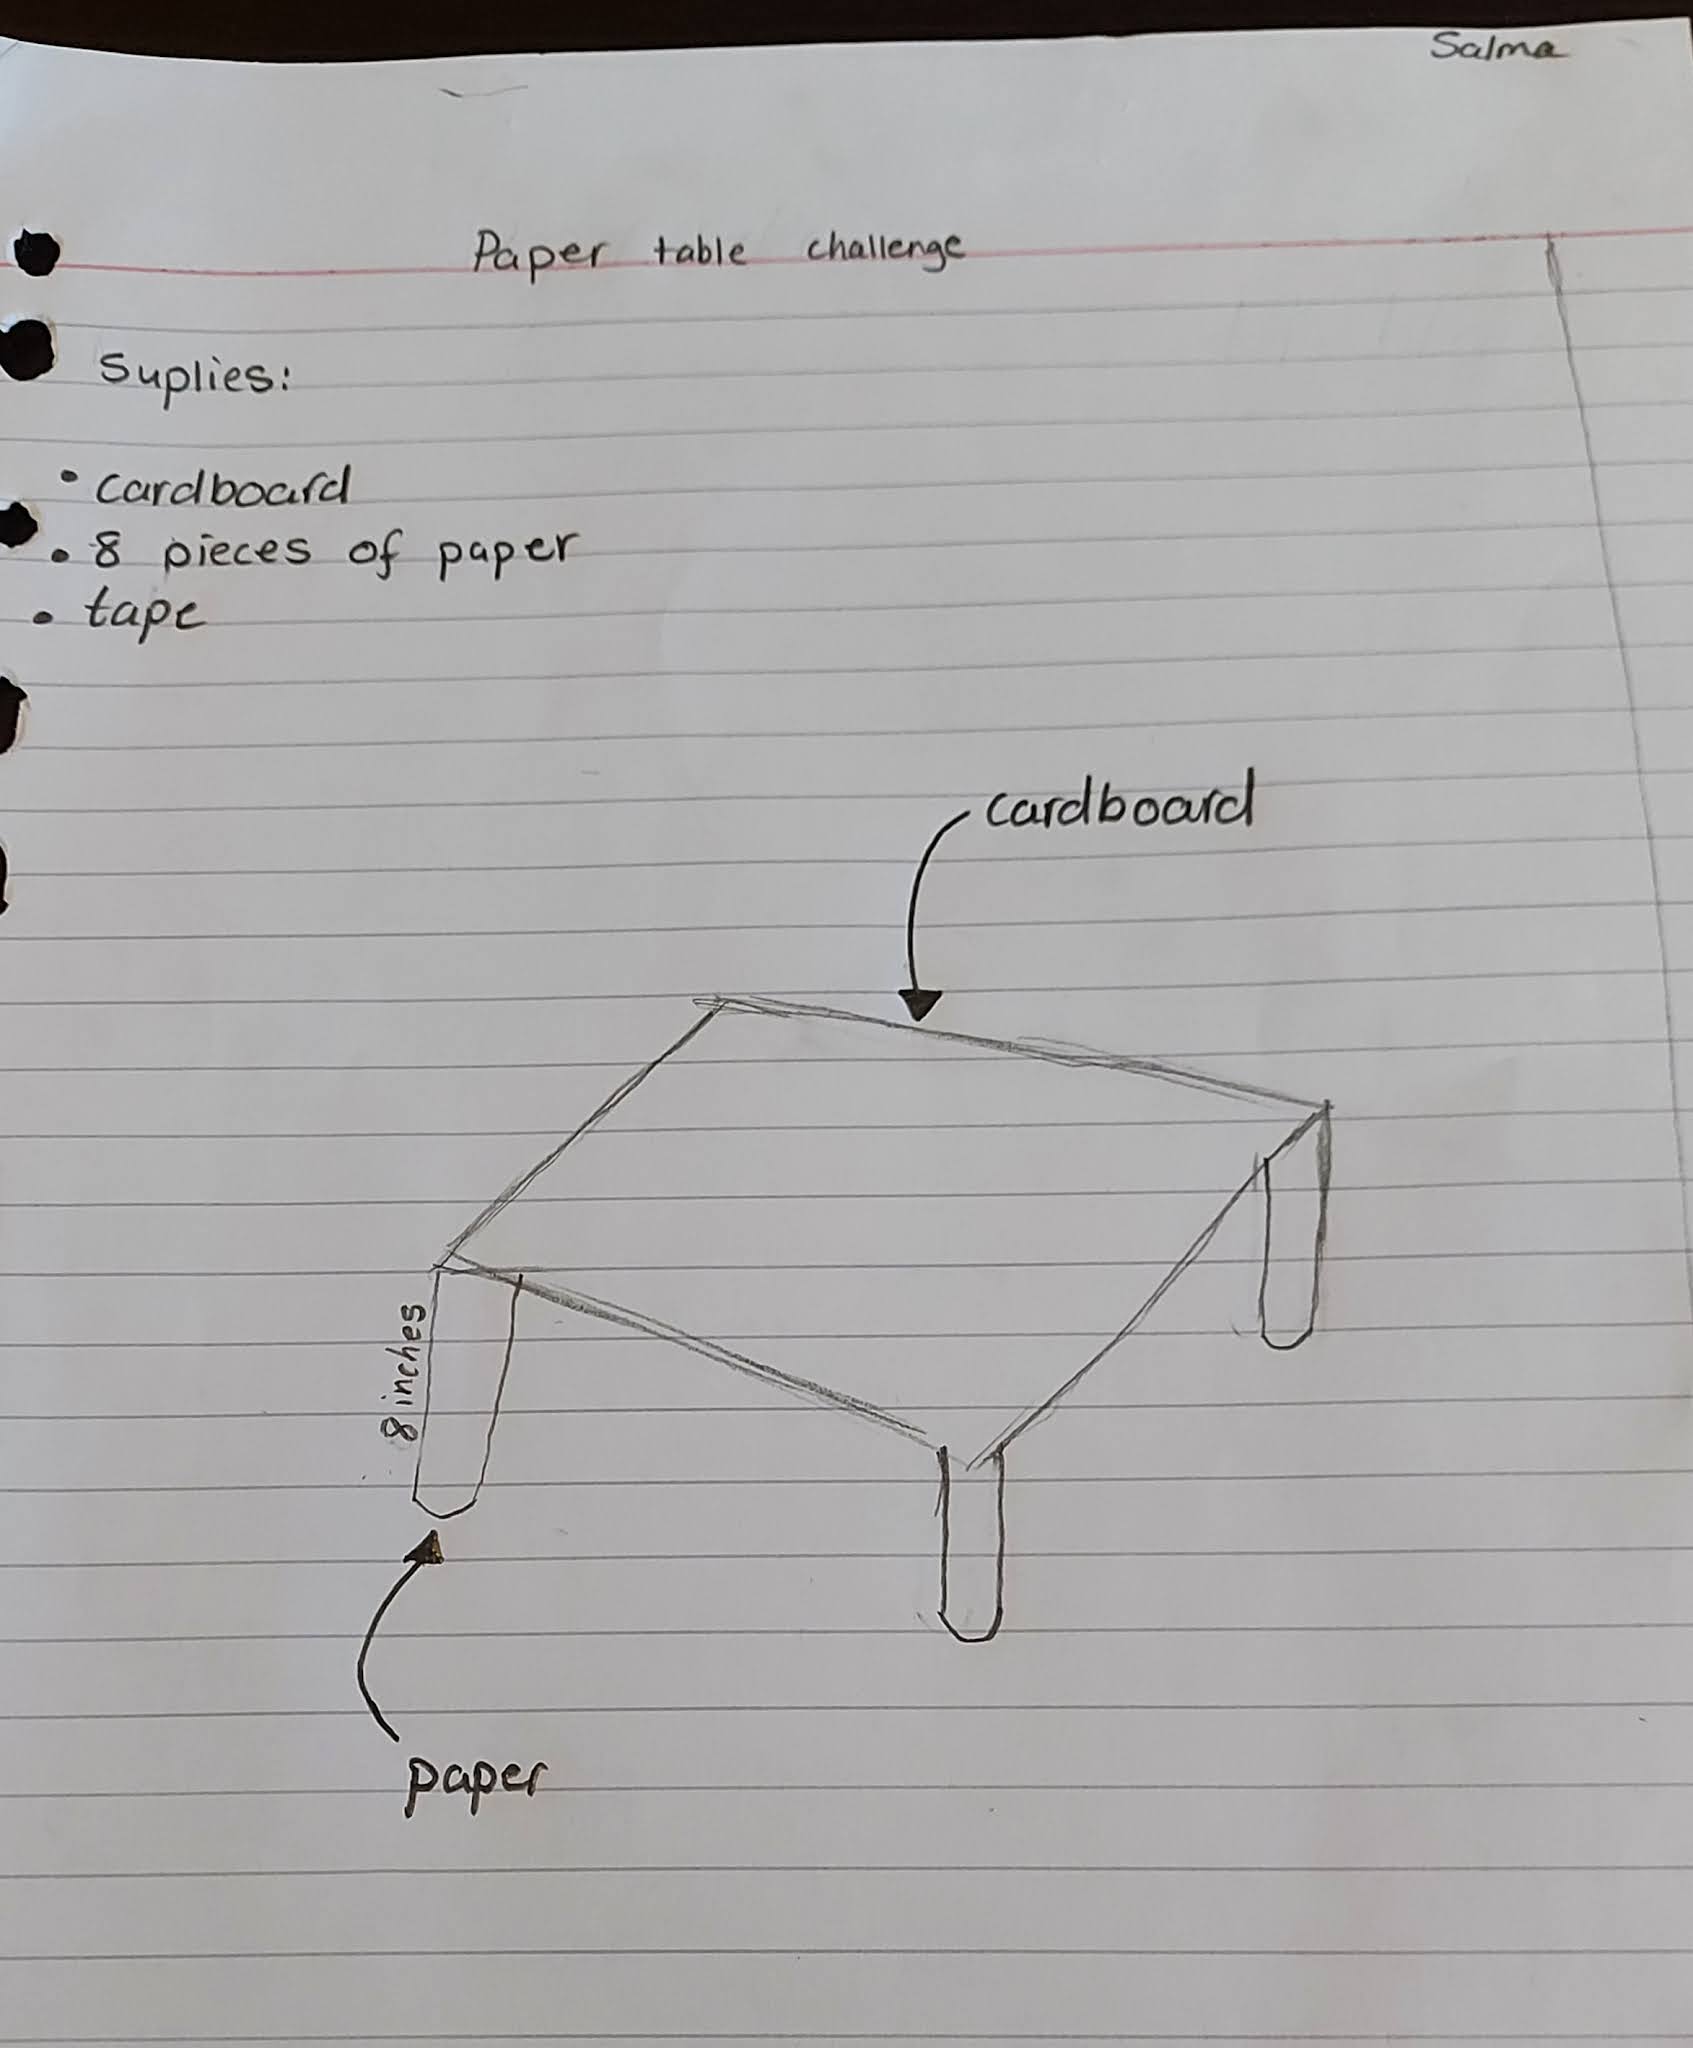 Salma
Paper table challenge
Suplies:
• cardboard
• 8 pieces of paper
• tape
cardboard
8 inches
paper